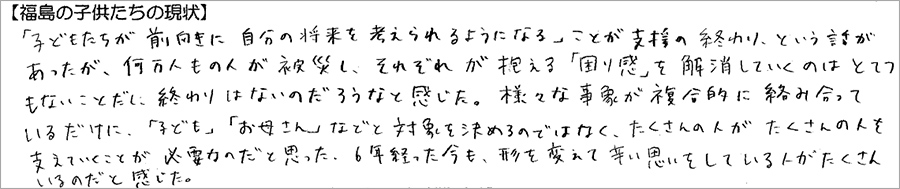 【福島の子供たちの現状】
「子どもたちが前向きに自分の将来を考えられるようになる」ことが支援の終わり、という話が
あったが、何万人もの人が被災し、それぞれが抱える「困り感」を解消していくのはとてつ
もないことだし、終わりはないのだろうなと感じた。様々な事象が複合的に絡み合って
いるだけに、「子ども」「お母さん」などと対象を決めるのではなく、たくさんの人がたくさんの人を
支えていくことが必要なのだと思った。6年経った今も、形を変えて辛い思いをしている人がたくさん
いるのだと感じた。